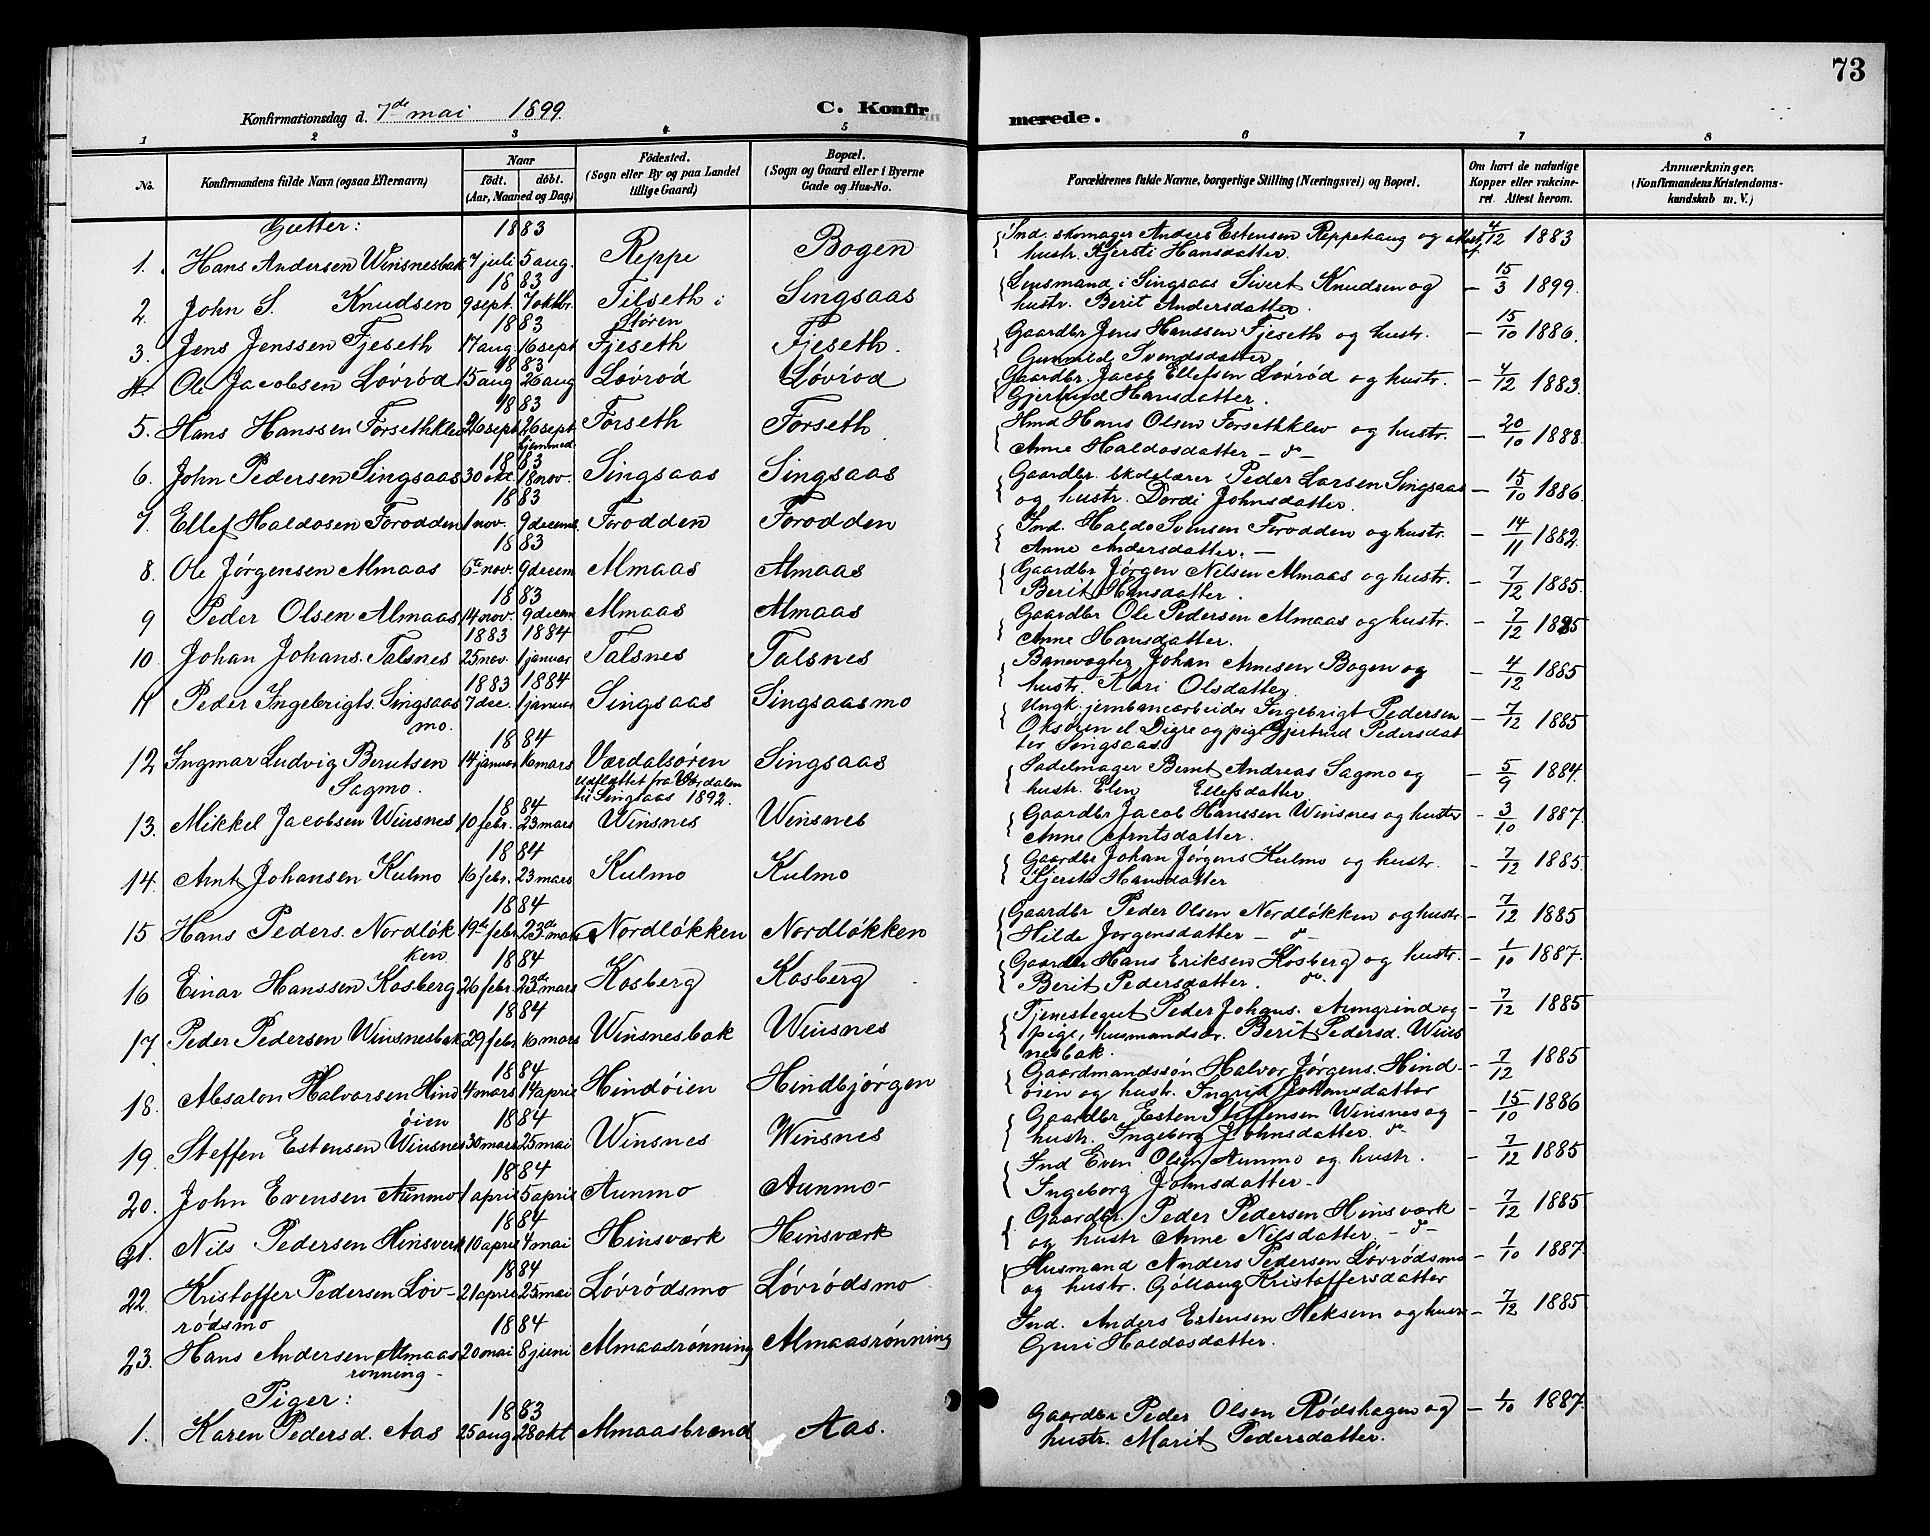 73
Konfirmationsdag d. 7de mai 1899.
C. Konfirmerede.
1 2 3 4 5 6 7 8
No. Konfirmandens fulde Navn (ogsaa Efternavn) Naar født. døbt. (Aar, Maaned og Dag) Fødested. (Sogn eller By og paa Landet tillige Gaard) Bopæl. (Sogn og Gaard eller i Byerne Gade og Hus-No. Forældrenes fulde Navne, borgerlige Stilling (Næringsvei) og Bopæl. Om havt de naturlige Kopper eller vakcineret. Attest herom. Anmærkninger. (Konfirmandens Kristendomskundskab m. V.)
Gutter:
1883
1. Hans Andersen Winsnesbak 7 juli 5 aug. Reppe Bogen Ind. skomager Anders Estensen Reppehaug og hustr. Kjersti Hansdatter. 4/12 1883
1883
2. John S. Knudsen 9 sept. 7 oktbr. Tilseth i Støren Singsaas Lensmand i Singsaas Sivert Knudsen og hustr. Berit Andersdatter. – 15/3 1899.
1883
3. Jens Jenssen Fjeseth 17 aug. 16 sept Fjeseth Fjeseth. Gaardbr Jens Hanssen Fjeseth og hustr. Gunnild Svendsdatter – 15/10 1886.
1883
4. Ole Jacobsen Løvrød 15 aug 26 aug Løvrød Løvrød Gaardbr. Jacob Ellefsen Løvrød og hustr. Gjertrud Hansdatter. – 4/12 1883
1883
5. Hans Hanssen Forsethklev 26 sept 26 sept. hjemmed. Forseth Forseth Hmd Hans Olsen Forsethklev og hustr. Anne Haldosdatter – do – – 20/10 1888.
1883
6. John Pedersen Singsaas 30 okt. 18 nov. Singsaas Singsaas Gaardbr. skolelærer Peder Larsen Singsaas og hustr. Dordi Johnsdatter. – 15/10 1886.
1883
7. Ellef Haldosen Forodden 1 nov. 9 decemb. Forodden Forodden Ind. Haldo Svensen Forodden og hustr. Anne Andersdatter. – – 14/11 1882
1883
8. Ole Jørgensen Almaas 5te nov. 9 decem Almaas Almaas Gaardbr Jørgen Nilsen Almaas og hustr. Berit Hansdatter. – 7/12 1885.
1883
9 Peder Olsen Almaas 14 nov. 9 decem Almaas Almaas Gaardbr Ole Pedersen Almaas og hustr. Anne Hansdatter. – 7/12 1885
1883 1884
10. Johan Johans. Talsnes 25 nov. 1 januar Talsnes Talsnes Banevogter Johan Arnesen Bogen og hustr. Kari Olsdatter – 4/12 1885
1883 1884
11 Peder Ingebrigts. Singsaasmo. 7 dec. 1 januar Singsaas Singsaasmo Ungk. jernbanearbeider Ingebrigt Pedersen Oksøien el. Digre og pige Gjertrud Pedersdatter Singsaas. – 7/12 1885
1884
12 Ingmar Ludvig Berntsen Sagmo. 14 januar 16 mars Værdalsøren udflyttet fra Værdalen til Singsaas 1892. Singsaas Sadelmager Bernt Andreas Sagmo og hustr. Elen Ellefsdatter – 5/9 1884.
1884
13. Mikkel Jacobsen Winsnes 10 febr. 23 mars Winsnes Winsnes Gaardbr Jacob Hanssen Winsnes og hustr Anne Arntsdatter. – 3/10 1887.
1884
14. Arnt Johansen Kulmo 16 febr. 23 mars Kulmo Kulmo Gaardbr Johan Jørgens Kulmo og hustr. Kjersti Hansdatter – 7/12 1885.
1884
15 Hans Peders. Nordløkken 19de febr 23de mars Nordløkken Nordløkken Gaardbr Peder Olsen Nordløkken og hustr Hilde Jørgensdatter – do – – 7/12 1885
1884
16 Einar Hanssen Kosberg 26 febr. 23de mars Kosberg Kosberg Gaardbr Hans Eriksen Kosberg og hustr. Berit Pedersdatter. do. – 1/10 1887.
1884
17. Peder Pedersen Winsnesbak 29 febr 16 mars Winsnesbak Winsnes Tjenestegut Peder Johans. Aungrind og pige, husmandsdr. Berit Pedersd. Winsnesbak. – 7/12 1885
1884
18. Absalon Halvorsen Hindøien 4 mars 14 april Hindøien Hindbjørgen Gaardmandssøn Halvor Jørgens. Hindøien og hustr. Ingrid Johnsdatter – 7/12 1885
1884
19. Steffen Estensen Winsnes 30 mars 25 mai Winsnes Winsnes Gaardbr Esten Steffensen Winsnes og hustr. Ingeborg Johnsdatter. do – 15/10 1886
1884
20. John Evensen Aunmo 1 april 5 april Aunmo Aunmo Ind Even Olsen Aunmo og hustr. Ingeborg Johnsdatter – – 7/12 1885
1884
21. Nils Pedersen Hinsverk 10 april 4 mai Hinsværk Hinsværk Gaardbr. Peder Pedersen Hinsværk og hustr Anne Nilsdatter. – do – – 7/12 1885
1884
22. Kristoffer Pedersen Løvrødsmo 21 april 25 mai Løvrødsmo Løvrødsmo Husmand Anders Pedersen Løvrødsmo og hustr. Gøllaug Kristoffersdatter – 1/10 1887.
1884
23. Hans Andersen Almaasrønning – 20 mai 8 juni Almaasrønning Almaasrønning Ind. Anders Estensen Heksem og hustr Guri Haldosdatter. – 7/12 1885
Piger:
1883
1. Karen Pedersd. Aas 25 aug 28 okt Almaasbrænd Aas. Gaardbr Peder Olsen Rødshagen og hustr. Marit Pedersdatter. – 1/10 1887.